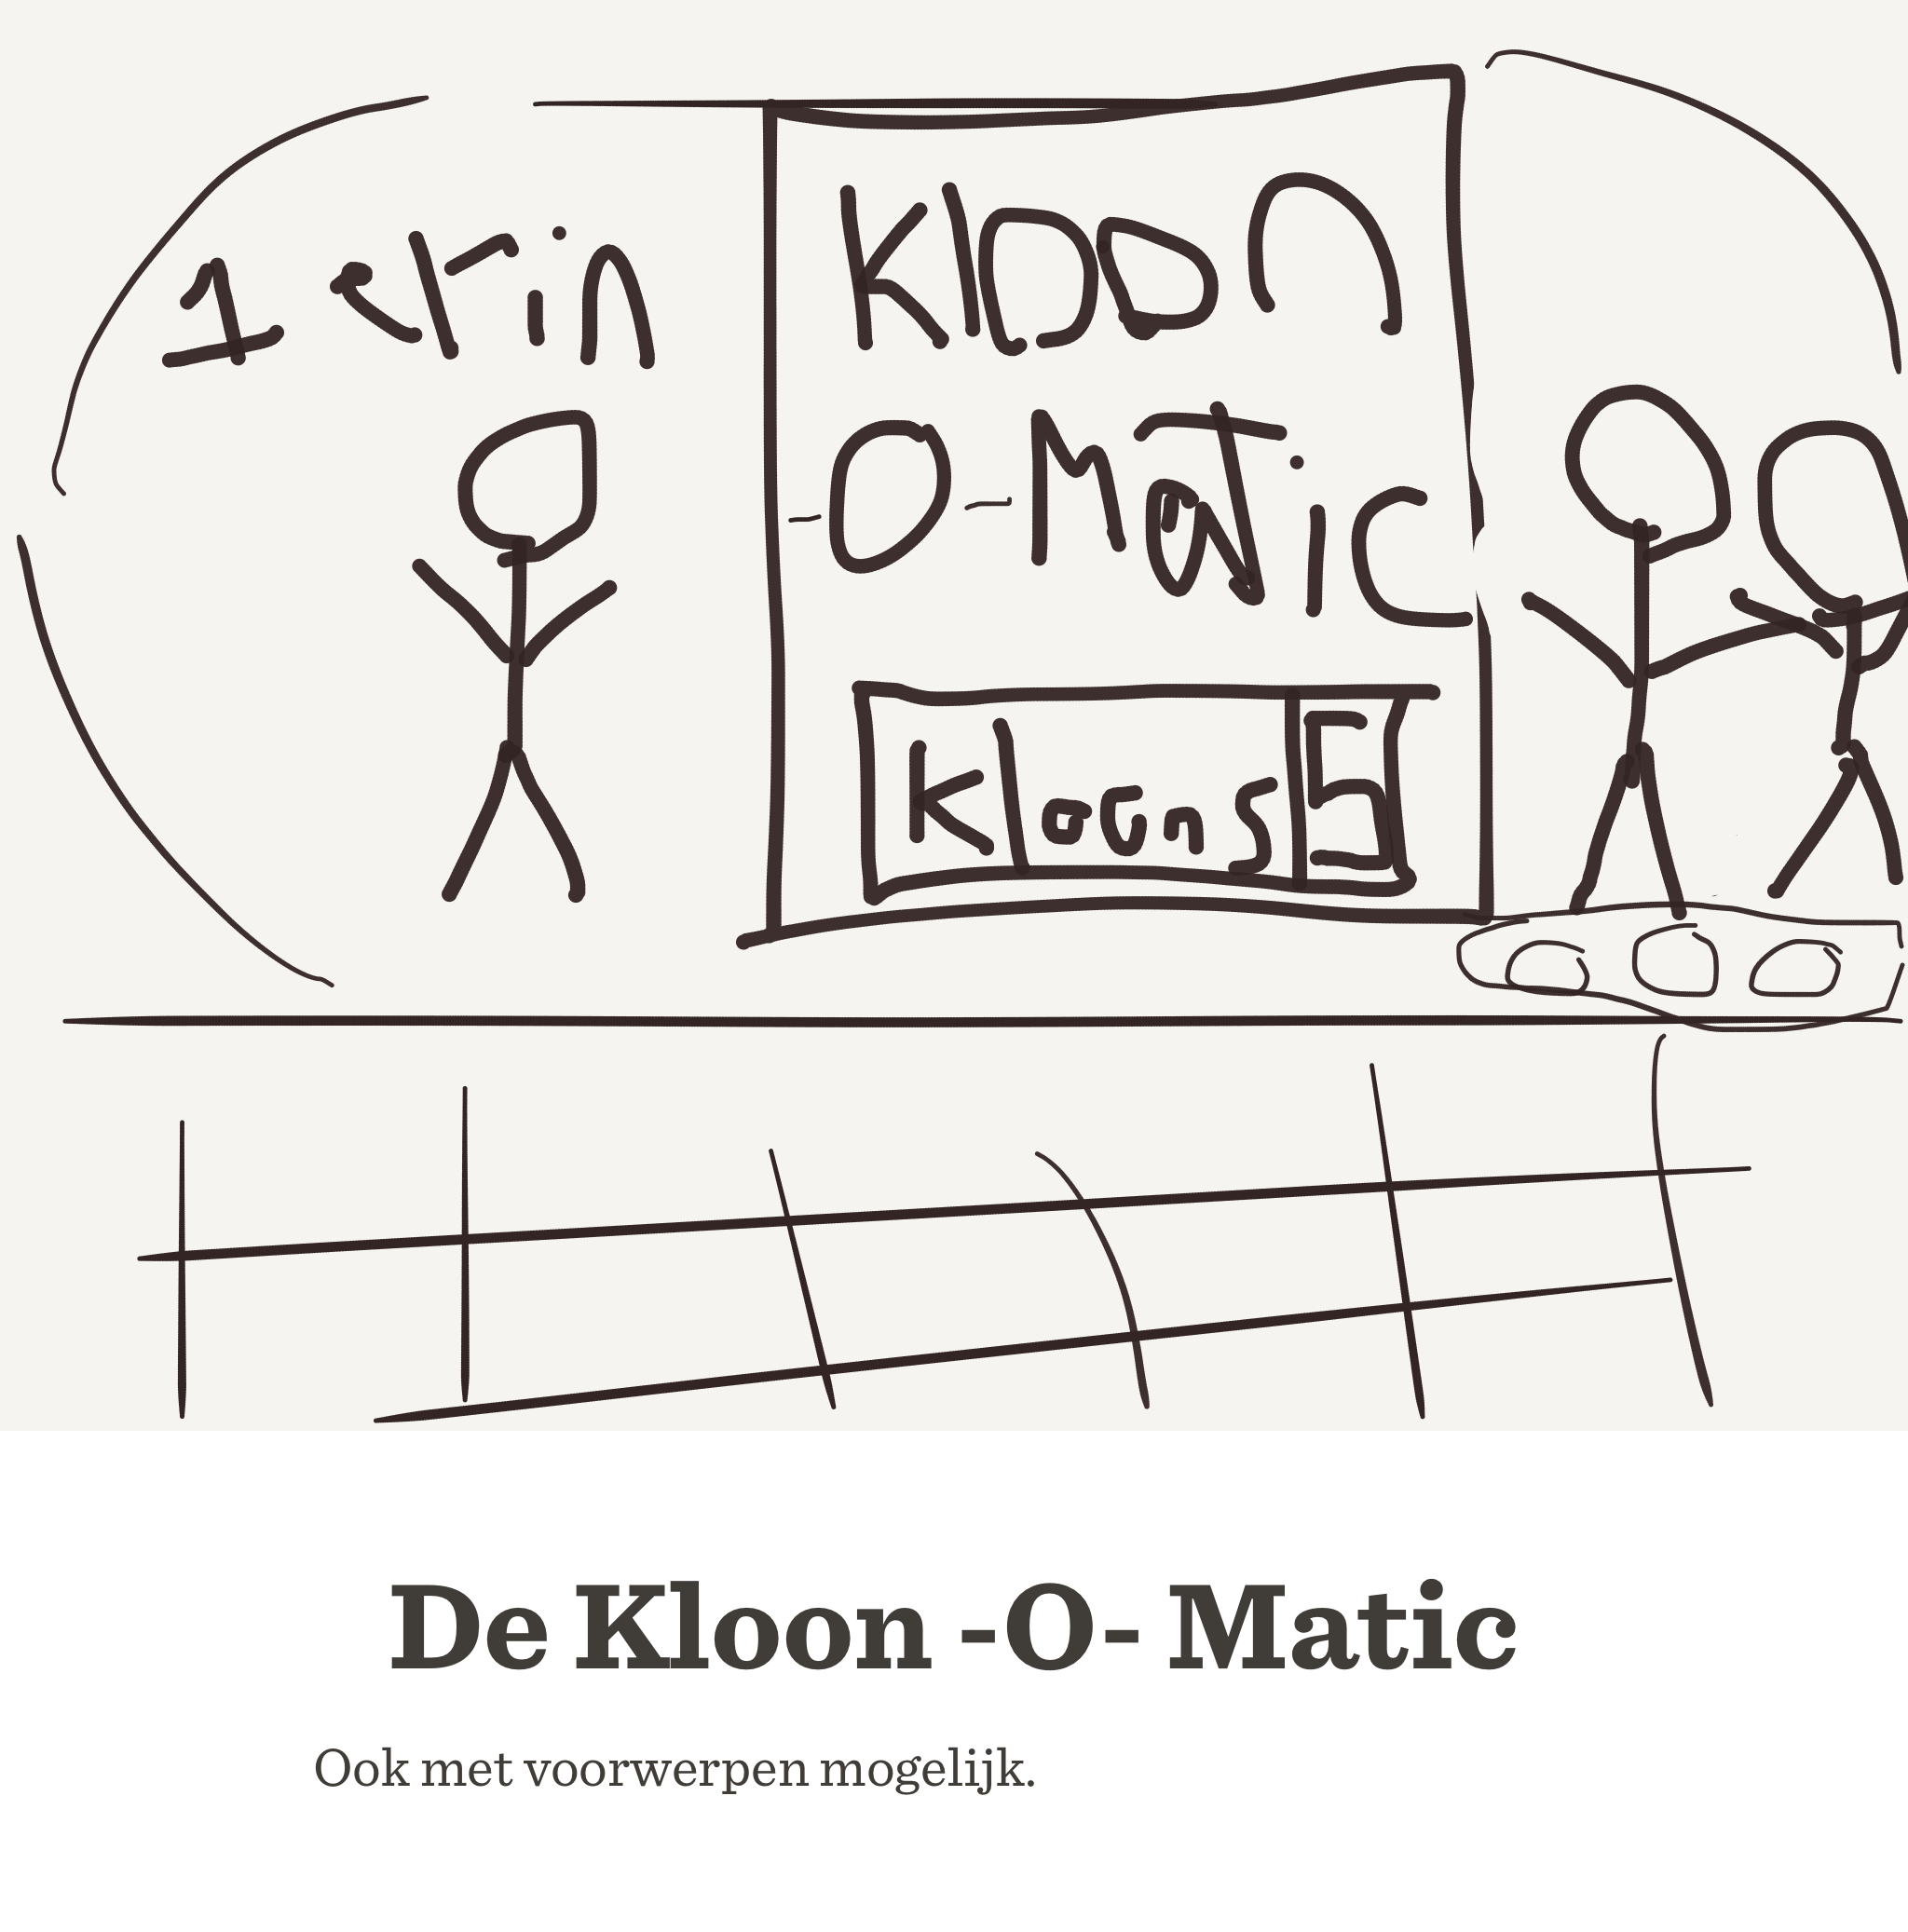 1 er in
Kloon
-O-Matic
Kloons 5
De Kloon -O- Matic
Ook met voorwerpen mogelijk.